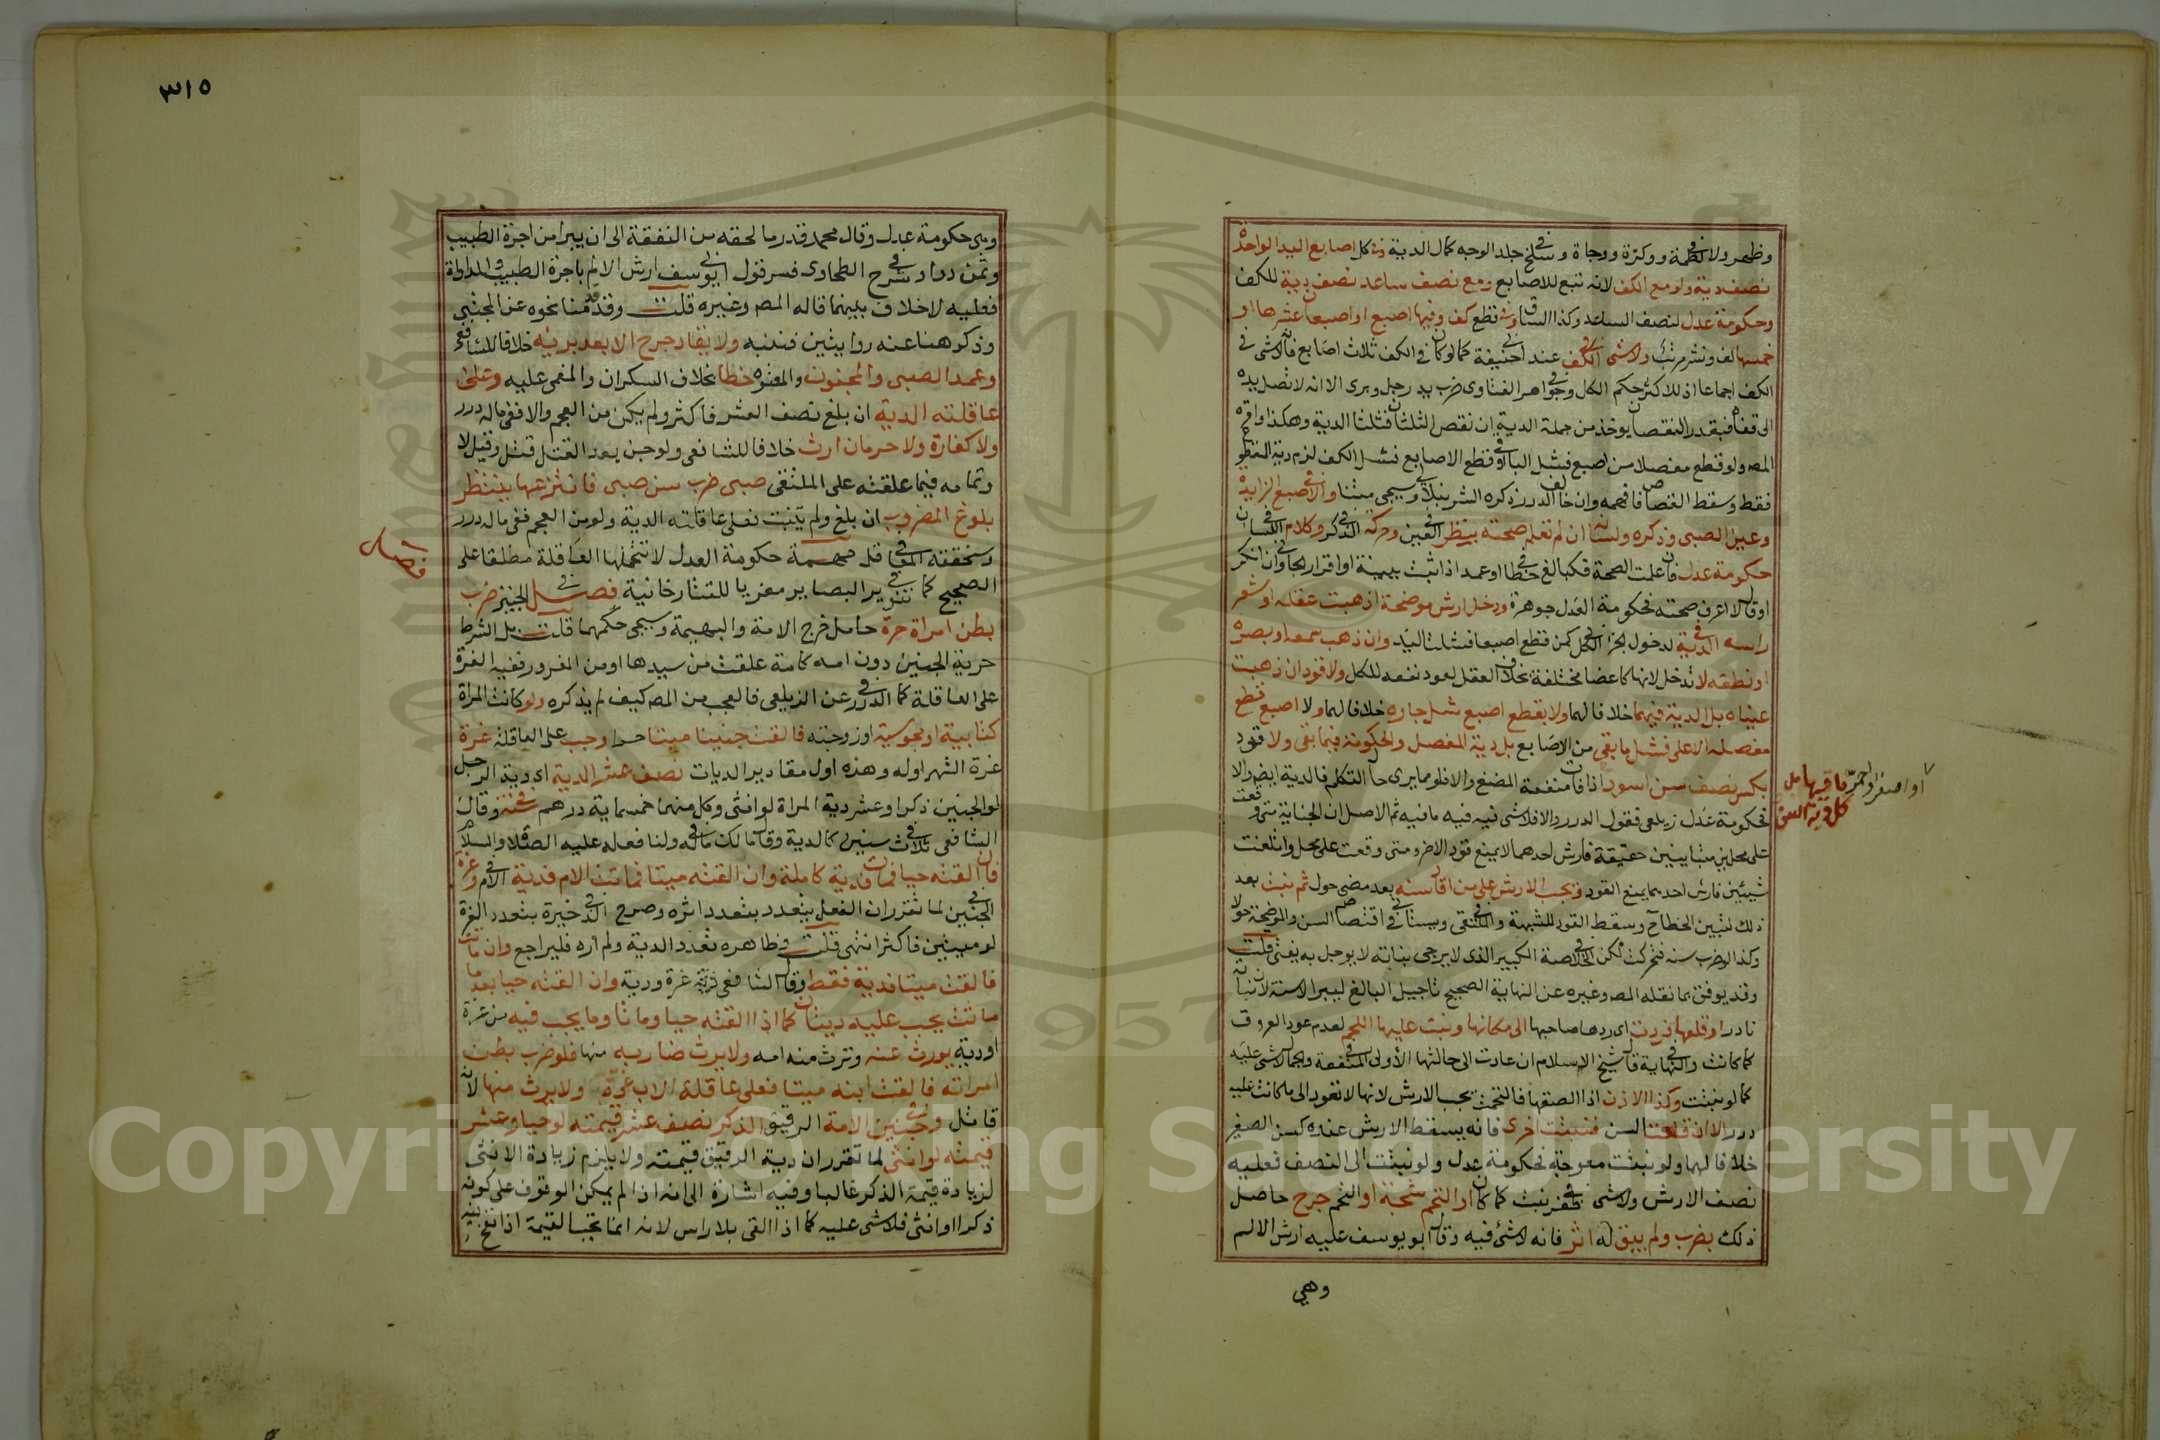 وظهر ولا في لطمة ووكزة ووجاة وفي سلخ جلد الوجه كمال الدية وفي كل اصابع اليد الواحدة
نصف دية ولو مع الكف لانه تبع للاصابع ومع نصف ساعد نصف دية للكف
وحكومة عدل لنصف الساعد وكذا الساق وفي قطع كف وفيها اصبع او اصبعان عشرها او
خمسها لف ونشر مرتب ولا شئ في الكف عند ابي حنيفة كما لو كان في الكف ثلاث اصابع فانه لا شئ في
الكف اجماعا اذ للاكثر حكم الكل وفي جواهر الفتاوى ضرب يد رجل وبرئ الا انه لا تصل يده
الى قفاه فبقدر النقصان يؤخذ من جملة الدية ان نقص الثلثان فثلثا الدية وهكذا واقره
المصـ ولو قطع مفصلا من اصبع فشل الباقي او قطع الاصابع فشل الكف لزم دية المقطوع
فقط وسقط القصاص فافهمه وان خالف الدرر ذكره الشرنبلالي وسيجئ متنا وفي الاصبع الزايدة
وعين الصبي وذكره ولسانه ان لم تعلم صحته بنظر في العين وحركة في الذكر وكلام في اللسان
حكومة عدل فان علمت الصحة فكبالغ في خطا او عمد اذا ثبت ببينة او اقرار الجاني وان انكر
او قال لا اعرف صحته فحكومة العدل جوهرة ودخل ارش موضحة اذهبت عقله او شعر
راسه في الدية لدخول الجزء في الكل كمن قطع اصبعا فشلت اليد وان ذهب سمعه او بصره
او نطقه لا تدخل لانها كاعضا مختلفة بخلاف العقل لعود نفعه للكل ولا قود ان ذهبت
عيناه بل الدية فيهما خلافا لهما ولا بقطع اصبع شل جاره خلافا لهما ولا اصبع قطع
مفصله الاعلى فشل ما بقي من الاصابع بل دية المفصل والحكومة فيما بقي ولا قود
بكسر نصف سن اسود
او اصفر او احمر باقيها بل
كل دية السن
اذا فات منفعة المضغ والا فلو مما يرى حال التكلم فالدية ايضا والا
فحكومة عدل زيلعي فقول الدرر والا فلا شئ فيه فيه ما فيه ثم الاصل ان الجناية متى وقعت
على محلين متباينين حقيقة فارش احدهما لا يمنع قود الاخر ومتى وقعت على محل واتلفت
شيئين فارش احدهما يمنع القود ويجب الارش على من اقاد سنه بعد مضي حول ثم نبت بعد
ذلك لتبين الخطا ح وسقط القود للشبهة وفي الملتقى ويستاني في اقتصاص السن والموضحة حولا
وكذا لو ضرب سنه فتحركت لكن في الخلاصة الكبير الذي لا يرجى نباته لا يؤجل به يفتى قلت
وقد يوفق بما نقله المصـ وغيره عن النهاية الصحيح تاجيل البالغ ليبرا لا سنة لان نباته
نادر او قلعها فردت اي ردها صاحبها الى مكانها ونبت عليها اللحم لعدم عود العروق
كما كانت وفي النهاية قال شيخ الاسلام ان عادت الى حالتها الأولى في المنفعة والجمال لا شئ عليه
كما لو نبتت وكذا الاذن اذا الصقها فالتحمت يجب الارش لانها لا تعود الى ما كانت عليه
درر لا ان قلعت السن فنبتت اخرى فانه يسقط الارش عنده كسن الصغير
خلافا لهما ولو نبتت معوجة فحكومة عدل ولو نبتت الى النصف فعليه
نصف الارش ولا شئ في ظفر نبت كما كان او التحم شجة او التحم جرح حاصل
ذلك بضرب ولم يبق له اثر فانه لا شئ فيه وقال ابو يوسف عليه ارش الالم
وهي
٣١٥
وهي حكومة عدل وقال محمد قدر ما لحقه من النفقة الى ان يبرا من اجرة الطبيب
وثمن دواء وفي شرح الطحاوي فسر قول ابي يوسف ارش الالم باجرة الطبيب والمداواة
فعليه لا خلاف بينهما قاله المصـ وغيره قلت وقد قدمنا نحوه عن المجتبى
وذكر هنا عنه روايتين فتنبه ولا يقاد جرح الا بعد برئه خلافا للشافعي
وعمد الصبي والمجنون والمعتوه خطا بخلاف السكران والمغمى عليه وعلى
عاقلته الدية ان بلغ نصف العشر فاكثر ولم يكن من العجم والا ففي ماله درر
ولا كفارة ولا حرمان ارث خلافا للشافعي ولو جن بعد القتل قتل وقيل لا
وتمامه فيما علقته على الملتقى صبي ضرب سن صبي فانتزعها ينتظر
بلوغ المضروب ان بلغ ولم ينبت فعلى عاقلته الدية ولو من العجم ففي ماله درر
وسنحققه في المعاقل مهمة حكومة العدل لا تتحملها العاقلة مطلقا على
الصحيح كما في تنوير البصاير معزيا للتتارخانية فصل في الجنين ضرب
فصل
بطن امراة حرة حامل خرج الامة والبهيمة وسيجئ حكمهما قلت بل الشرط
حرية الجنين دون امه كامة علقت من سيدها او من المغرور ففيه الغرة
على العاقلة كما في الدرر عن الزيلعي فالعجب من المصـ كيف لم يذكره ولو كانت المراة
كتابية او مجوسية او زوجته فالقت جنينا ميتا حرا وجب على العاقلة غرة
غرة الشهر اوله وهذه اول مقادير الديات نصف عشر الدية اي دية الرجل
لو الجنين ذكرا وعشر دية المراة لو انثى وكل منهما خمسماية درهم في سنة وقال
الشافعي في ثلاث سنين كالدية وقال مالك في ماله ولنا فعله عليه الصلاة والسلام
فان القته حيا فمات فدية كاملة وان القته ميتا فماتت الام فدية في الام وغرة
في الجنين لما تقرر ان الفعل يتعدد بتعدد اثره وصرح في الذخيرة بتعدد الغرة
لو ميتين فاكثر انتهى قلت وظاهره تعدد الدية ولم اره فليراجع وان ماتت
فالقت ميتا فدية فقط وقال الشافعي غرة ودية وان القته حيا بعدما
ماتت يجب عليه ديتان كما اذا القته حيا وماتا وما يجب فيه من غرة
او دية يورث عنه وترث منه امه ولا يرث ضاربه منها فلو ضرب بطن
امراته فالقت ابنه ميتا فعلى عاقلة الاب غرة ولا يرث منها لانه
قاتل وفي جنين الامة الرقيق الذكر نصف عشر قيمته لو حيا وعشر
قيمته لو انثى لما تقرر ان دية الرقيق قيمته ولا يلزم زيادة الانثى
لزيادة قيمة الذكر غالبا وفيه اشارة الى انه اذا لم يمكن الوقوف على كونه
ذكرا او انثى فلا شئ عليه كما اذا القي بلا راس لانه انما تجب القيمة اذا نفخ فيه
Copyright © King Saud University
1957